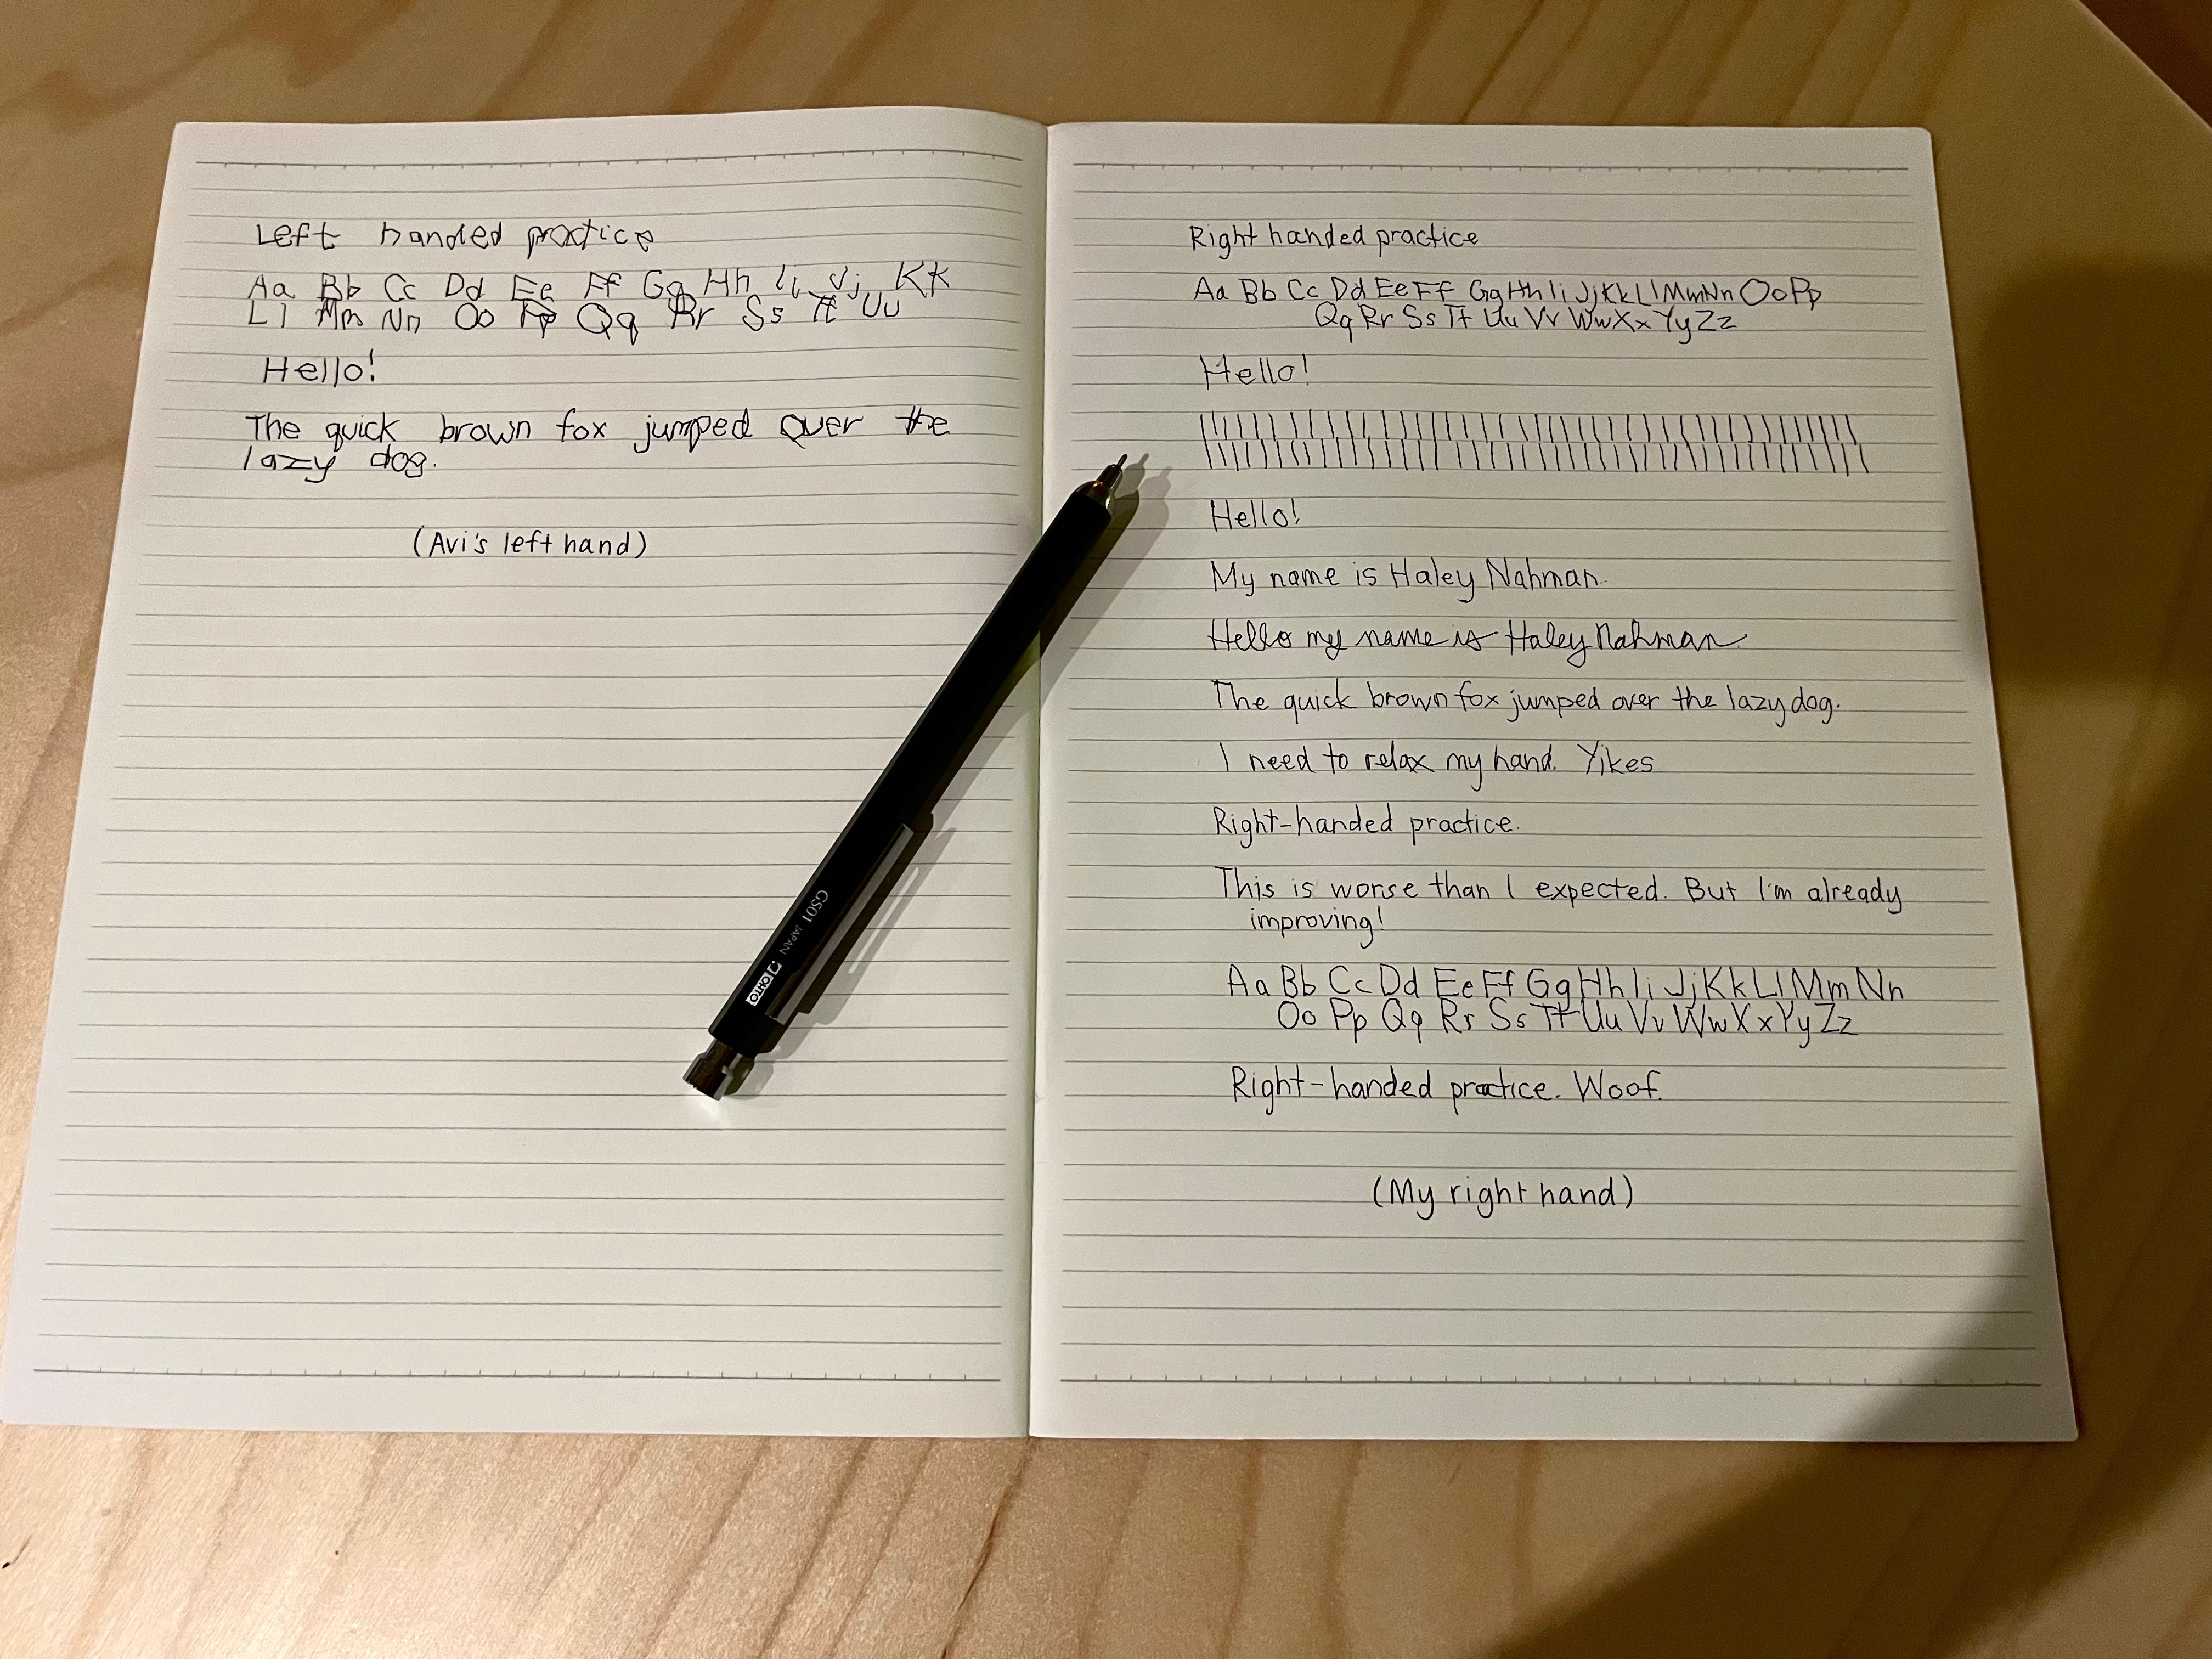 Left handed practice
Aa Bb Cc Dd Ee Ff Gg Hh Ii Jj Kk
Ll Mm Nn Oo Pp Qq Rr Ss Tt Uu
Hello!
The quick brown fox jumped over the
lazy dog.
(Avi's left hand)
GS01 JAPAN
OHTO
Right handed practice
Aa Bb Cc Dd Ee Ff Gg Hh Ii Jj Kk Ll Mm Nn Oo Pp
Qq Rr Ss Tt Uu Vv Ww Xx Yy Zz
Hello!
Hello!
My name is Haley Nahman.
Hello my name is Haley Nahman
The quick brown fox jumped over the lazy dog.
I need to relax my hand. Yikes
Right-handed practice.
This is worse than I expected. But I'm already
improving!
Aa Bb Cc Dd Ee Ff Gg Hh Ii Jj Kk Ll Mm Nn
Oo Pp Qq Rr Ss Tt Uu Vv Ww Xx Yy Zz
Right-handed practice. Woof.
(My right hand)